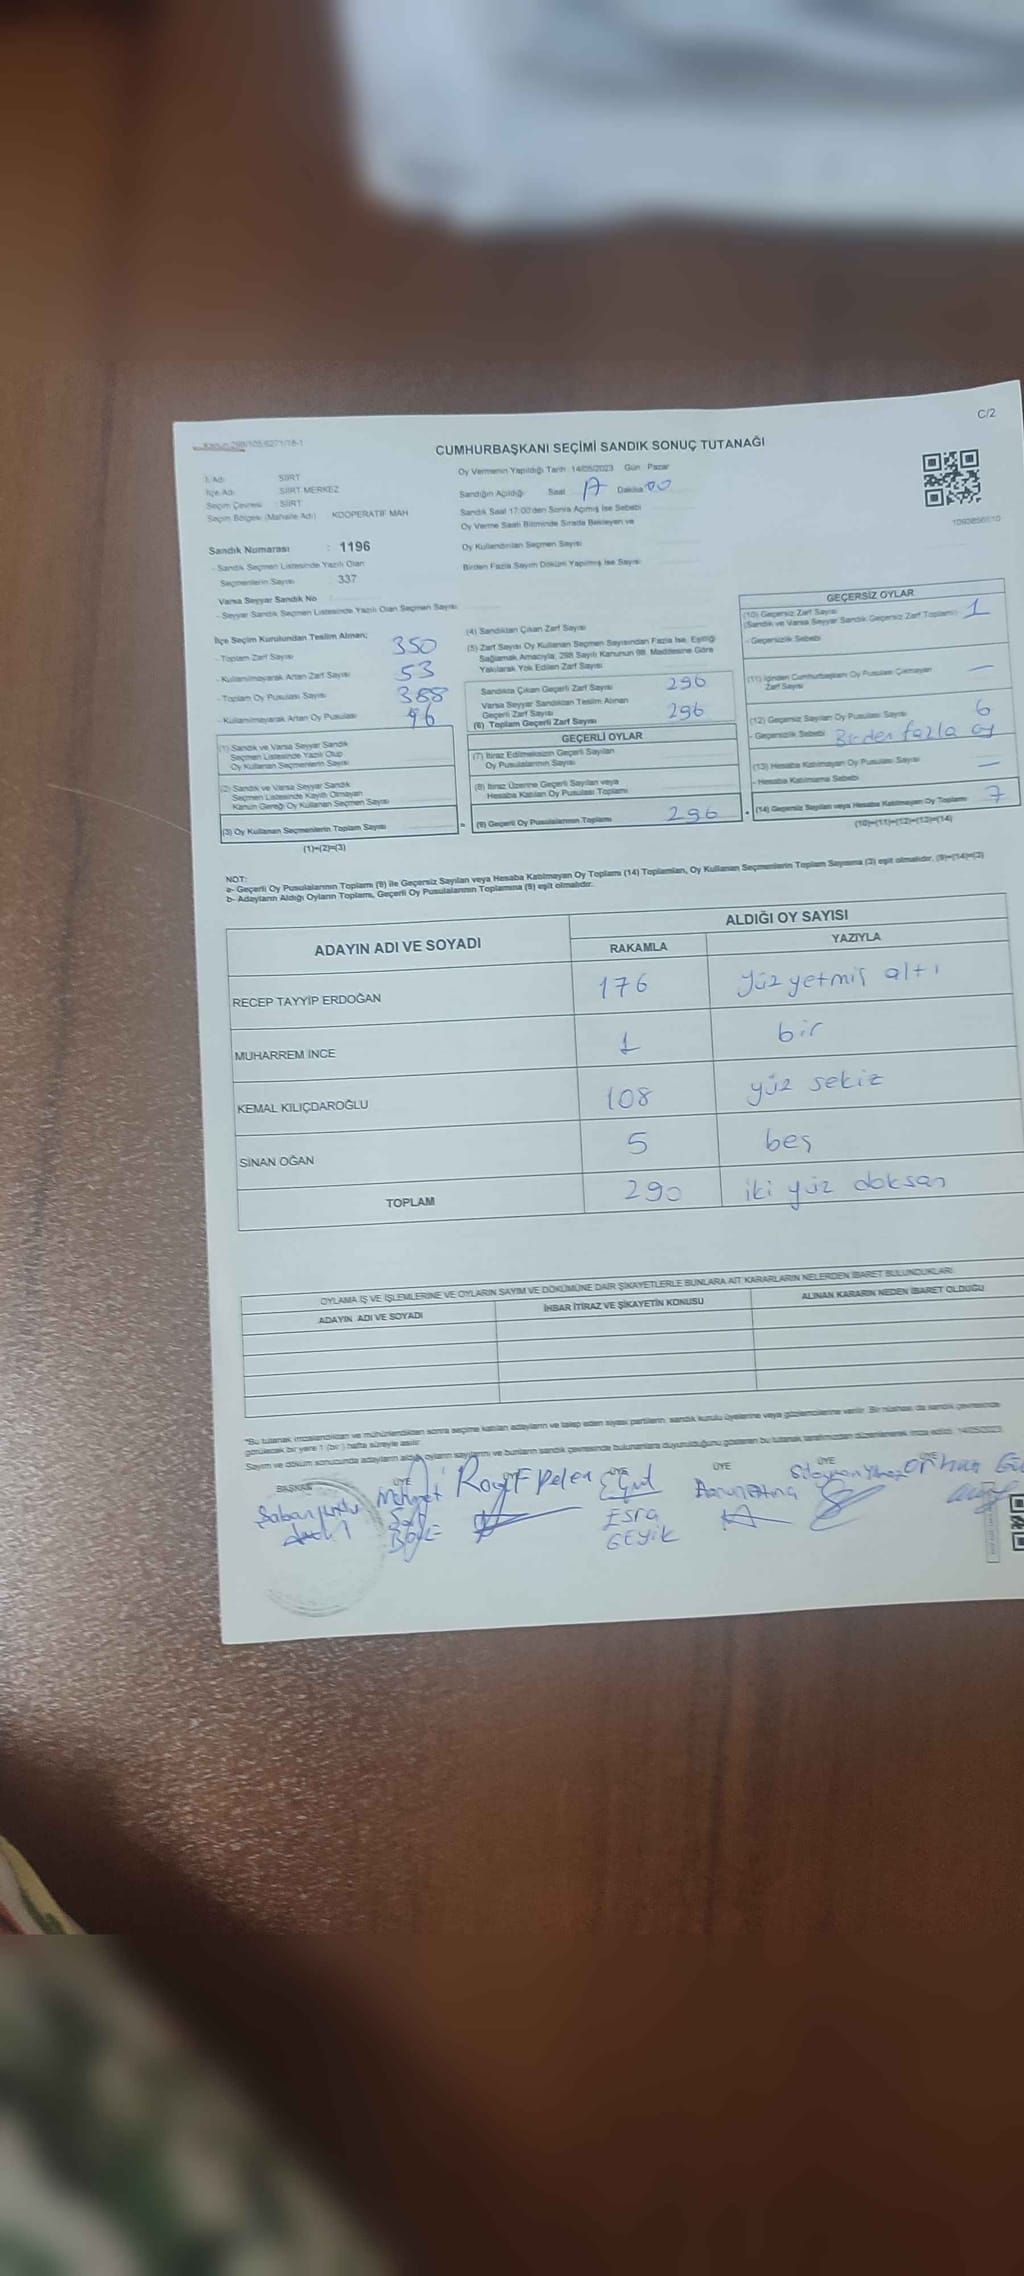 C/2
Kanun 298/105/6271/16-1
CUMHURBAŞKANI SEÇİMİ SANDIK SONUÇ TUTANAĞI
İl Adı : SİİRT
İlçe Adı : SİİRT MERKEZ
Seçim Çevresi : SİİRT
Seçim Bölgesi (Mahalle Adı) : KOOPERATİF MAH
Sandık Numarası : 1196
- Sandık Seçmen Listesinde Yazılı Olan
Seçmenlerin Sayısı 337
Varsa Seyyar Sandık No
- Seyyar Sandık Seçmen Listesinde Yazılı Olan Seçmen Sayısı
Oy Vermenin Yapıldığı Tarih : 14/05/2023 Gün : Pazar
Sandığın Açıldığı Saat 17 Dakika 00
Sandık Saat 17:00'den Sonra Açımış İse Sebebi
Oy Verme Saati Bitiminde Sırada Bekleyen ve
Oy Kullandırılan Seçmen Sayısı
Birden Fazla Sayım Döküm Yapılmış İse Sayısı
İlçe Seçim Kurulundan Teslim Alınan;
- Toplam Zarf Sayısı 350
- Kullanılmayarak Artan Zarf Sayısı 53
- Toplam Oy Pusulası Sayısı 388
- Kullanılmayarak Artan Oy Pusulası 96
(1) Sandık ve Varsa Seyyar Sandık
Seçmen Listesinde Yazılı Olup
Oy Kullanan Seçmenlerin Sayısı
(2) Sandık ve Varsa Seyyar Sandık
Seçmen Listesinde Kayıtlı Olmayan
Kanun Gereği Oy Kullanan Seçmen Sayısı
(3) Oy Kullanan Seçmenlerin Toplam Sayısı
(1)+(2)=(3)
(4) Sandıktan Çıkan Zarf Sayısı
(5) Zarf Sayısı Oy Kullanan Seçmen Sayısından Fazla İse, Eşitliği
Sağlamak Amacıyla, 298 Sayılı Kanunun 98. Maddesine Göre
Yakılarak Yok Edilen Zarf Sayısı
Sandıkta Çıkan Geçerli Zarf Sayısı 296
Varsa Seyyar Sandıktan Teslim Alınan
Geçerli Zarf Sayısı
(6) Toplam Geçerli Zarf Sayısı 296
GEÇERLİ OYLAR
(7) İtiraz Edilmeksizin Geçerli Sayılan
Oy Pusulalarının Sayısı
(8) İtiraz Üzerine Geçerli Sayılan veya
Hesaba Katılan Oy Pusulası Toplamı
= (9) Geçerli Oy Pusulalarının Toplamı 296
1093856510
GEÇERSİZ OYLAR
(10) Geçersiz Zarf Sayısı
(Sandık ve Varsa Seyyar Sandık Geçersiz Zarf Toplamı) 1
- Geçersizlik Sebebi
(11) İçinden Cumhurbaşkanı Oy Pusulası Çıkmayan
Zarf Sayısı —
(12) Geçersiz Sayılan Oy Pusulası Sayısı 6
- Geçersizlik Sebebi Birden fazla oy
(13) Hesaba Katılmayan Oy Pusulası Sayısı —
- Hesaba Katılmama Sebebi
+ (14) Geçersiz Sayılan veya Hesaba Katılmayan Oy Toplamı 7
(10)+(11)+(12)+(13)=(14)
NOT:
a- Geçerli Oy Pusulalarının Toplamı (9) ile Geçersiz Sayılan veya Hesaba Katılmayan Oy Toplamı (14) Toplamları, Oy Kullanan Seçmenlerin Toplam Sayısına (3) eşit olmalıdır. (9)+(14)=(3)
b- Adayların Aldığı Oyların Toplamı, Geçerli Oy Pusulalarının Toplamına (9) eşit olmalıdır.
ADAYIN ADI VE SOYADI ALDIĞI OY SAYISI
RAKAMLA YAZIYLA
RECEP TAYYİP ERDOĞAN 176 yüz yetmiş altı
MUHARREM İNCE 1 bir
KEMAL KILIÇDAROĞLU 108 yüz sekiz
SİNAN OĞAN 5 beş
TOPLAM 290 iki yüz doksan
OYLAMA İŞ VE İŞLEMLERİNE VE OYLARIN SAYIM VE DÖKÜMÜNE DAİR ŞİKAYETLERLE BUNLARA AİT KARARLARIN NELERDEN İBARET BULUNDUKLARI
ADAYIN ADI VE SOYADI İHBAR İTİRAZ VE ŞİKAYETİN KONUSU ALINAN KARARIN NEDEN İBARET OLDUĞU
*Bu tutanak imzalandıktan ve mühürlendikten sonra seçime katılan adayların ve talep eden siyasi partilerin, sandık kurulu üyelerine veya gözlemcilerine verilir. Bir nüshası da sandık çevresinde
görülecek bir yere 1 (bir) hafta süreyle asılır.
Sayım ve döküm sonucunda adayların aldığı oyların sayılarını ve bunların sandık çevresinde bulunanlara duyurulduğunu gösteren bu tutanak tarafımızdan düzenlenerek imza edildi. 14/05/2023
BAŞKAN ÜYE ÜYE ÜYE ÜYE ÜYE
Şaban Mehmet Pelen Orhan
Esra
GEYİK